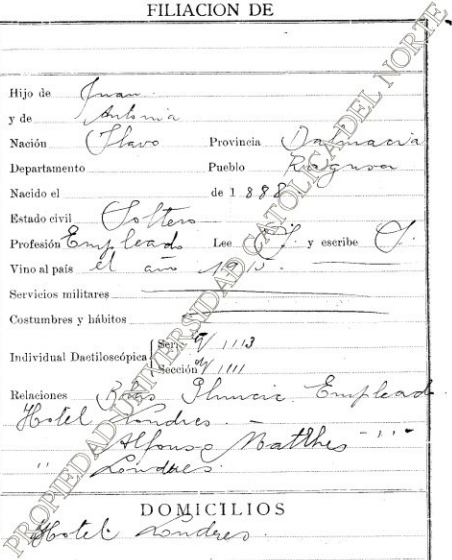 FILIACION DE
Hijo de Juan
y de Antonia
Nación Slavo Provincia Dalmacia
Departamento Pueblo Ragusa
Nacido el de 1888
Estado civil Soltero
Profesión Empleado Lee Sí y escribe Sí
Vino al país el año 1915.
Servicios militares
Costumbres y hábitos
Individual Dactiloscópica Serie 1113
Sección 1111
Relaciones Empleado
Hotel Londres. —
Alfonso Matthes " "
" Londres.
DOMICILIOS
Hotel Londres
PROPIEDAD UNIVERSIDAD CATOLICA DEL NORTE